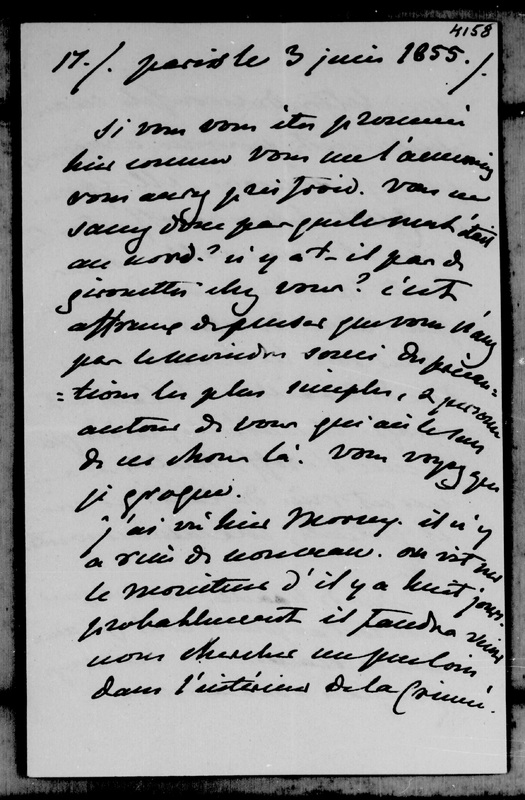 4158
17./. paris le 3 juin 1855./.
Si vous vous êtes promené
hier comme vous me l'annonciez
vous aurez pris froid. Vous ne
savez donc pas que le vent était
au nord? n'y a-t-il pas de
girouettes chez vous? c'est
affreux de penser que vous n'avez
pas le moindre souci des précau=
=tions les plus simples, & personne
autour de vous qui ait le sens
de ces choses là. Vous voyez que
je grogne.
j'ai vu hier Morny. il n'y
a rien de nouveau. on vit sur
le moniteur d'il y a huit jours.
probablement il faudra
nous chercher un peu loin
dans l'intérieur de la Crimée.